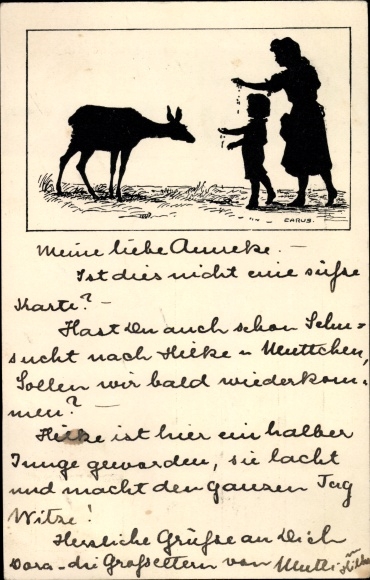 CARUS.
Meine liebe Anneke. –
Ist dies nicht eine süße
Karte? –
Hast Du auch schon Sehn=
sucht nach Hilke u Muttchen,
Sollen wir bald wiederkom=
men? –
Hilke ist hier ein halber
Junge geworden, sie lacht
und macht den ganzen Tag
Witze!
Herzliche Grüße an Dich
Dora - die Großeltern von Mutti u Hilke